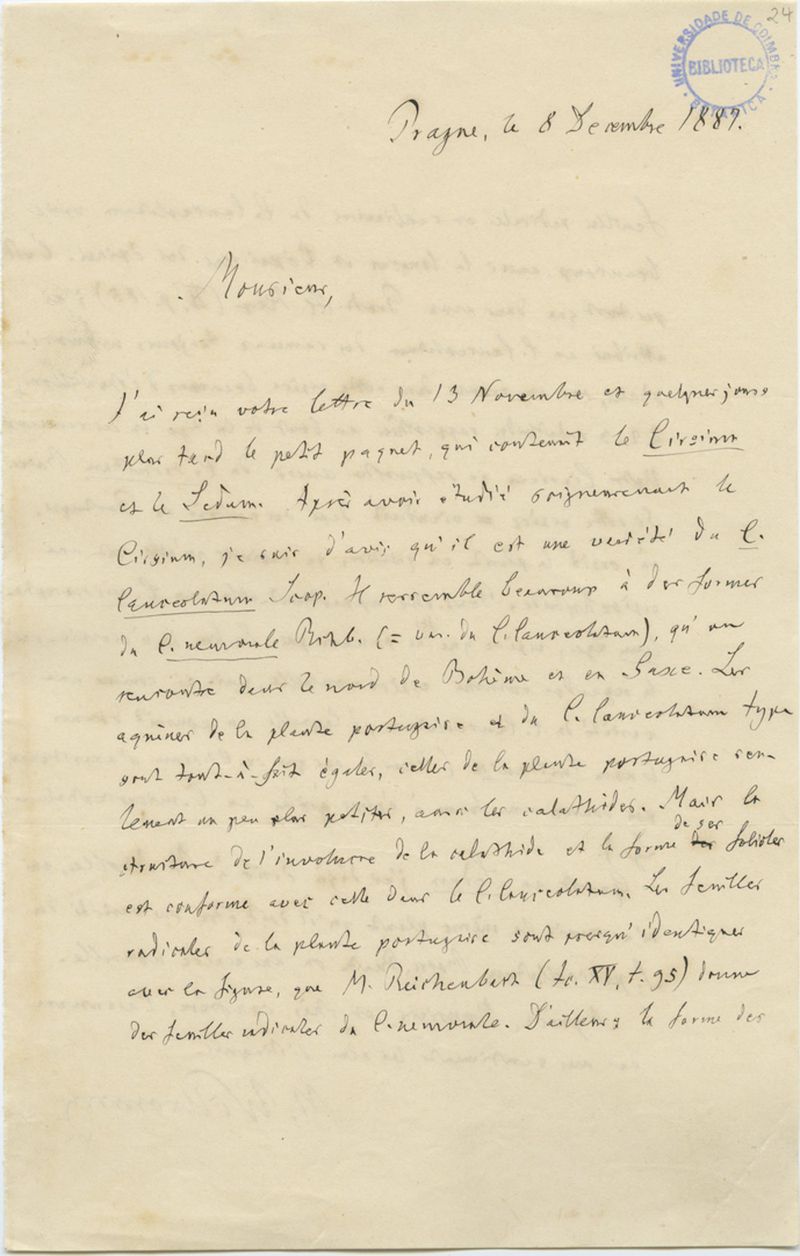 24
UNIVERSIDADE DE COIMBRA
BIBLIOTECA
BOTANICA
Prague, le 8 Decembre 1887.
Monsieur,
J'ai reçu votre lettre du 13 Novembre et quelques jours
plus tard le petit paquet, qui contenût le Cirsium
et le Sedum. Après avoir étudié soigneusement le
Cirsium, je suis d'avis qu'il est une variété du C.
lanceolatum Scop. Il ressemble beaucoup à des formes
du C. nemorale Rchb. (= var. du C. lanceolatum), qu'on
rencontre dans le nord de Bohême et en Saxe. Les
aquènes de la plante portugaise et du C. lanceolatum type
sont tout-à-fait égales, celles de la plante portugaise seu-
lement un peu plus petites, avec les calathides. Mais la
structure de l'involucre de la calathide et la forme de ses folioles
est conforme avec celle dans le C. lanceolatum. Les feuilles
radicales de la plante portugaise sont presqu'identiques
avec la figure, que M. Reichenbach (Ic. XV, t. 95) donne
des feuilles radicales du C. nemorale. D'ailleurs la forme des